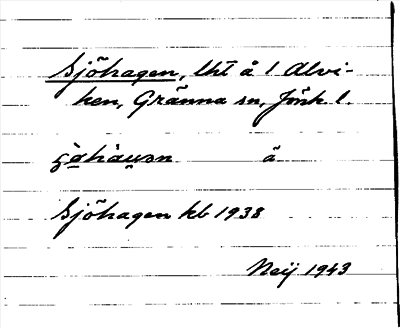 Sjöhagen, lht å 1 Alvi-
ken, Gränna sn, Jönk. l.
å
Sjöhagen kb 1938
Neij 1943